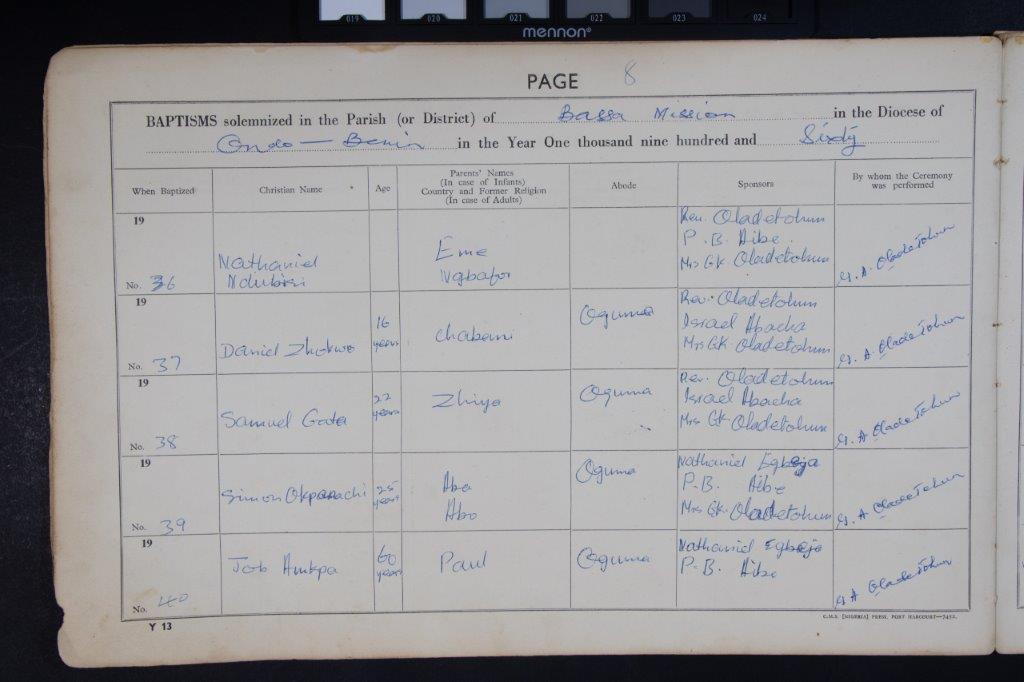 019 020 021 022 023 024
mennon®
PAGE 8
BAPTISMS solemnized in the Parish (or District) of Bassa Mission in the Diocese of
Ondo - Benin in the Year One thousand nine hundred and Sixty
When Baptized
Christian Name
Age
Parents' Names
(In case of Infants)
Country and Former Religion
(In case of Adults)
Abode
Sponsors
By whom the Ceremony
was performed
19
No. 36
Nathaniel
Ndubisi
Eme
Ngbafor
Rev. Oladetohun
P. B. Aibe.
Mrs GK Oladetohun
G. A. Oladetohun
19
No. 37
Daniel Zhokwo
16
years
Chabeni
Oguma
Rev. Oladetohun
Israel Abacha
Mrs GK Oladetohun
G. A. Oladetohun
19
No. 38
Samuel Gata
22
years
Zhiya
Oguma
Rev. Oladetohun
Israel Abacha
Mrs GK Oladetohun
G. A Oladetohun
19
No. 39
Simon Okparachi
25
years
Aba
Abo
Oguma
Nathaniel Egbeja
P.B. Aibe
Mrs GK. Oladetohun
G. A Oladetohun
19
No. 40
Job Amkpa
60
years
Paul
Oguma
Nathaniel Egbeja
P. B. Aibe
G. A Oladetohun
Y 13
C.M.S. [NIGERIA] PRESS, PORT HARCOURT—7452.